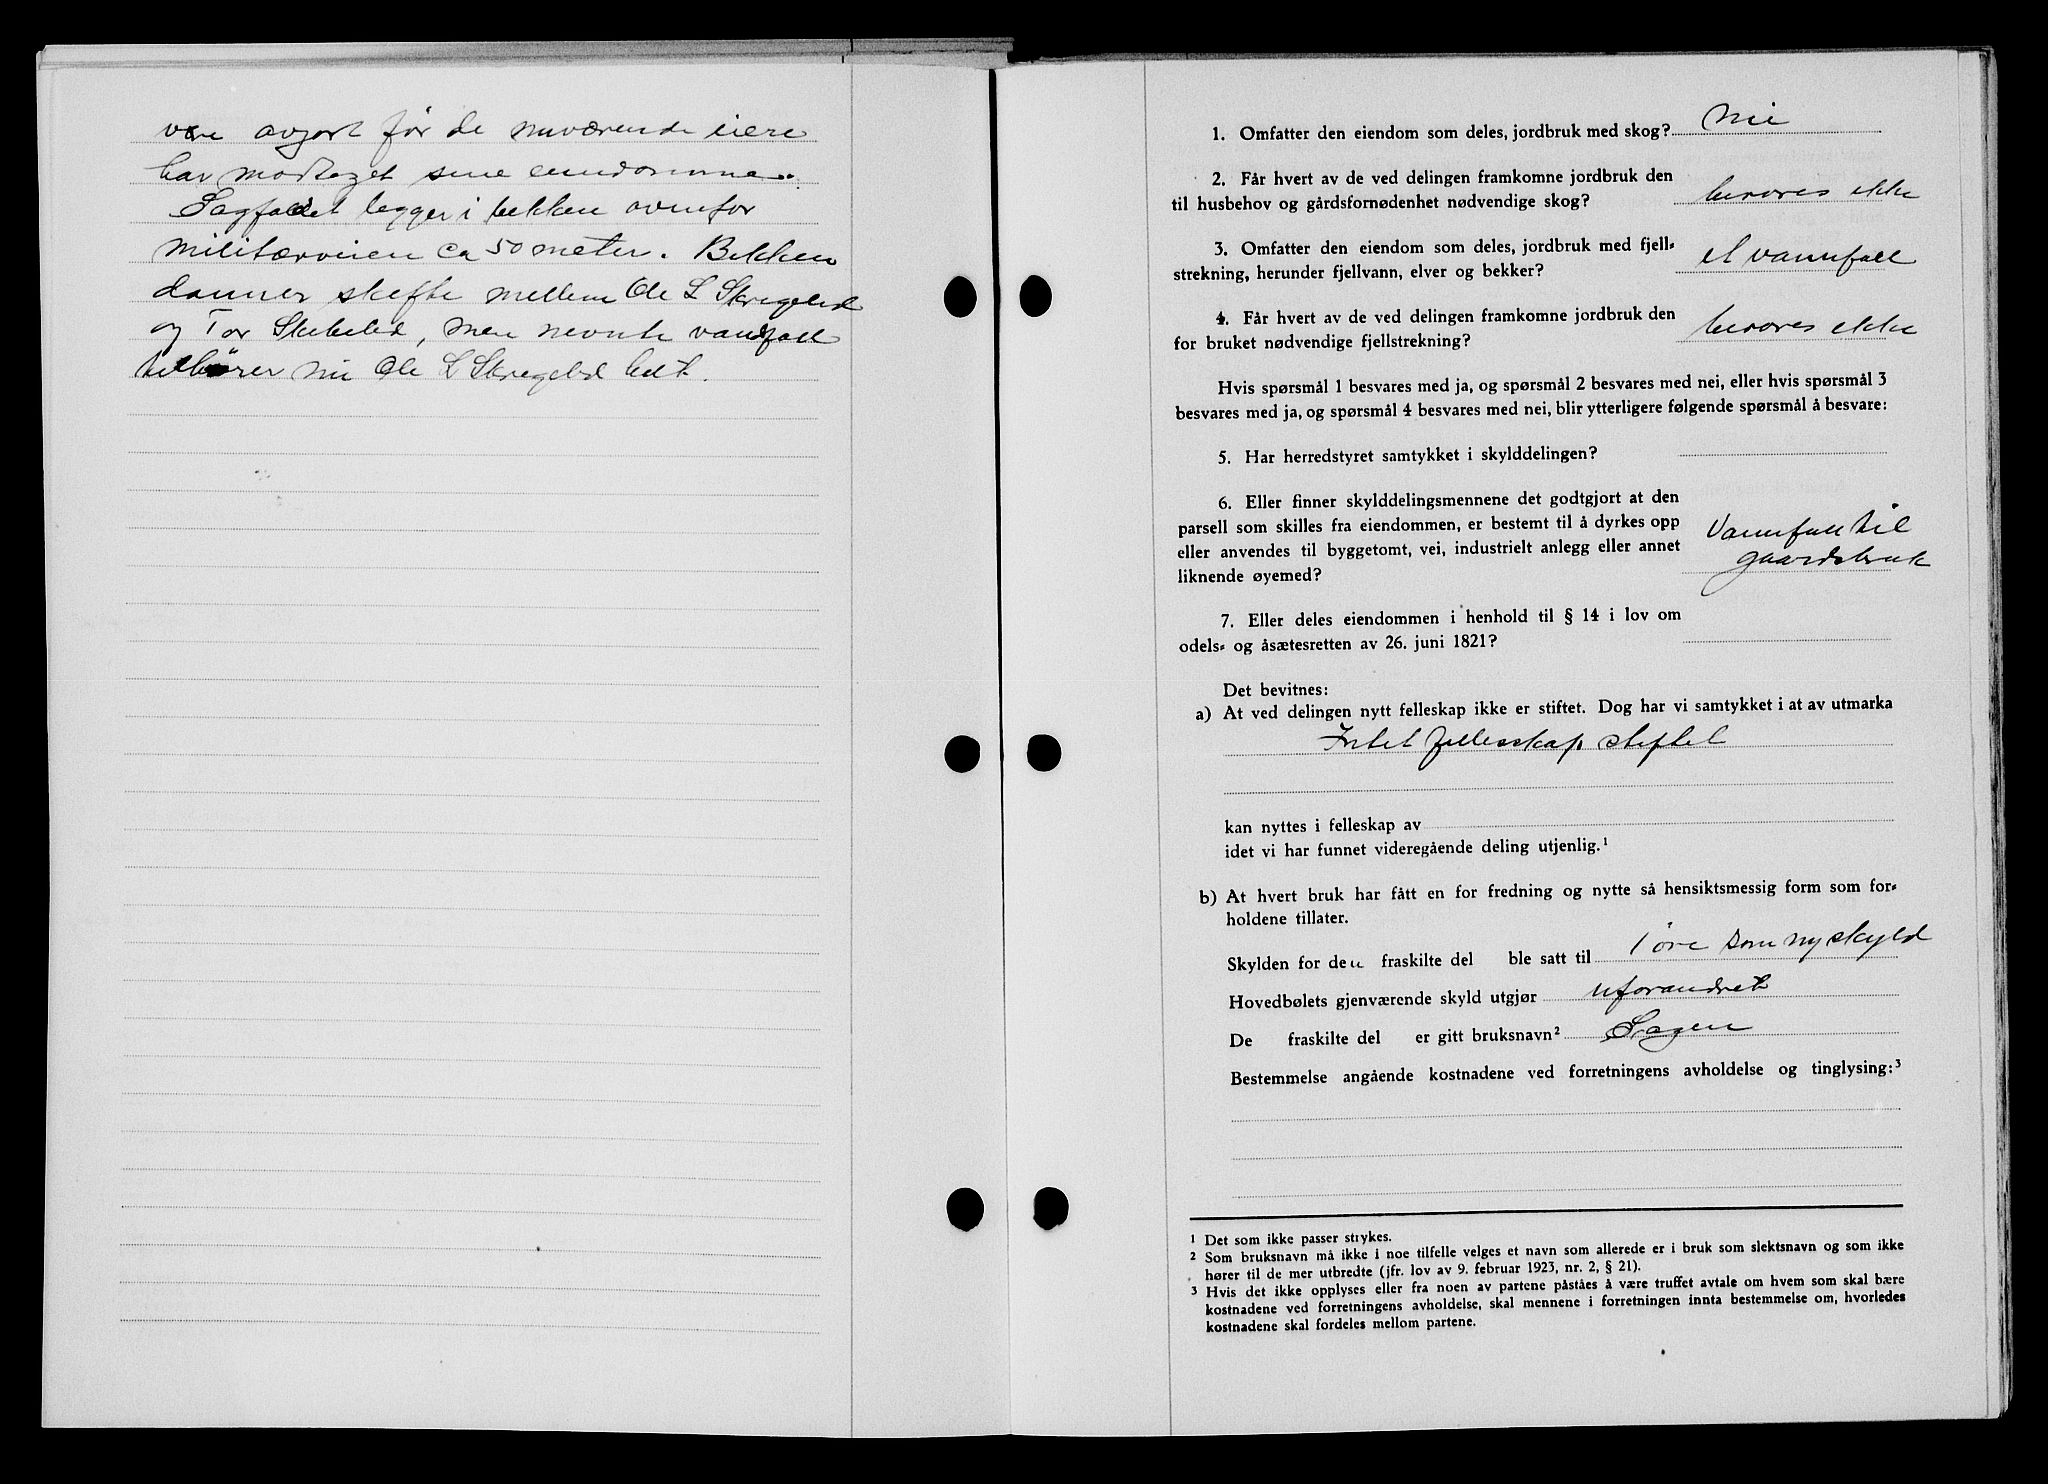 være avgjort før de nuværende eiere
har modtaget sine eiendomme.
Sagfaldet legger i bekken ovenfor
militærveien ca 50 meter. Bekken
danner skifte mellem Ole L Skregelid
og Tor Skibelid, men nevnte vandfall
tilhører nu Ole L Skregelid helt.
1. Omfatter den eiendom som deles, jordbruk med skog? nei
2. Får hvert av de ved delingen framkomne jordbruk den
til husbehov og gårdsfornødenhet nødvendige skog? berøres ikke
3. Omfatter den eiendom som deles, jordbruk med fjell-
strekning, herunder fjellvann, elver og bekker? et vannfall
4. Får hvert av de ved delingen framkomne jordbruk den
for bruket nødvendige fjellstrekning? berøres ikke
Hvis spørsmål 1 besvares med ja, og spørsmål 2 besvares med nei, eller hvis spørsmål 3
besvares med ja, og spørsmål 4 besvares med nei, blir ytterligere følgende spørsmål å besvare:
5. Har herredstyret samtykket i skylddelingen?
6. Eller finner skylddelingsmennene det godtgjort at den
parsell som skilles fra eiendommen, er bestemt til å dyrkes opp Vannfall til
eller anvendes til byggetomt, vei, industrielt anlegg eller annet gaardsbruk
liknende øyemed?
7. Eller deles eiendommen i henhold til § 14 i lov om
odels- og åsætesretten av 26. juni 1821?
Det bevitnes:
a) At ved delingen nytt felleskap ikke er stiftet. Dog har vi samtykket i at av utmarka
Intet fellesskap stiftet
kan nyttes i felleskap av
idet vi har funnet videregående deling utjenlig.¹
b) At hvert bruk har fått en for fredning og nytte så hensiktsmessig form som for-
holdene tillater.
Skylden for den fraskilte del ble satt til 1 øre som ny skyld
Hovedbølets gjenværende skyld utgjør uforandret
De fraskilte del er gitt bruksnavn² Sagen
Bestemmelse angående kostnadene ved forretningens avholdelse og tinglysing:³
¹ Det som ikke passer strykes.
² Som bruksnavn må ikke i noe tilfelle velges et navn som allerede er i bruk som slektsnavn og som ikke
hører til de mer utbredte (jfr. lov av 9. februar 1923, nr. 2, § 21).
³ Hvis det ikke opplyses eller fra noen av partene påståes å være truffet avtale om hvem som skal bære
kostnadene ved forretningens avholdelse, skal mennene i forretningen innta bestemmelse om, hvorledes
kostnadene skal fordeles mellom partene.